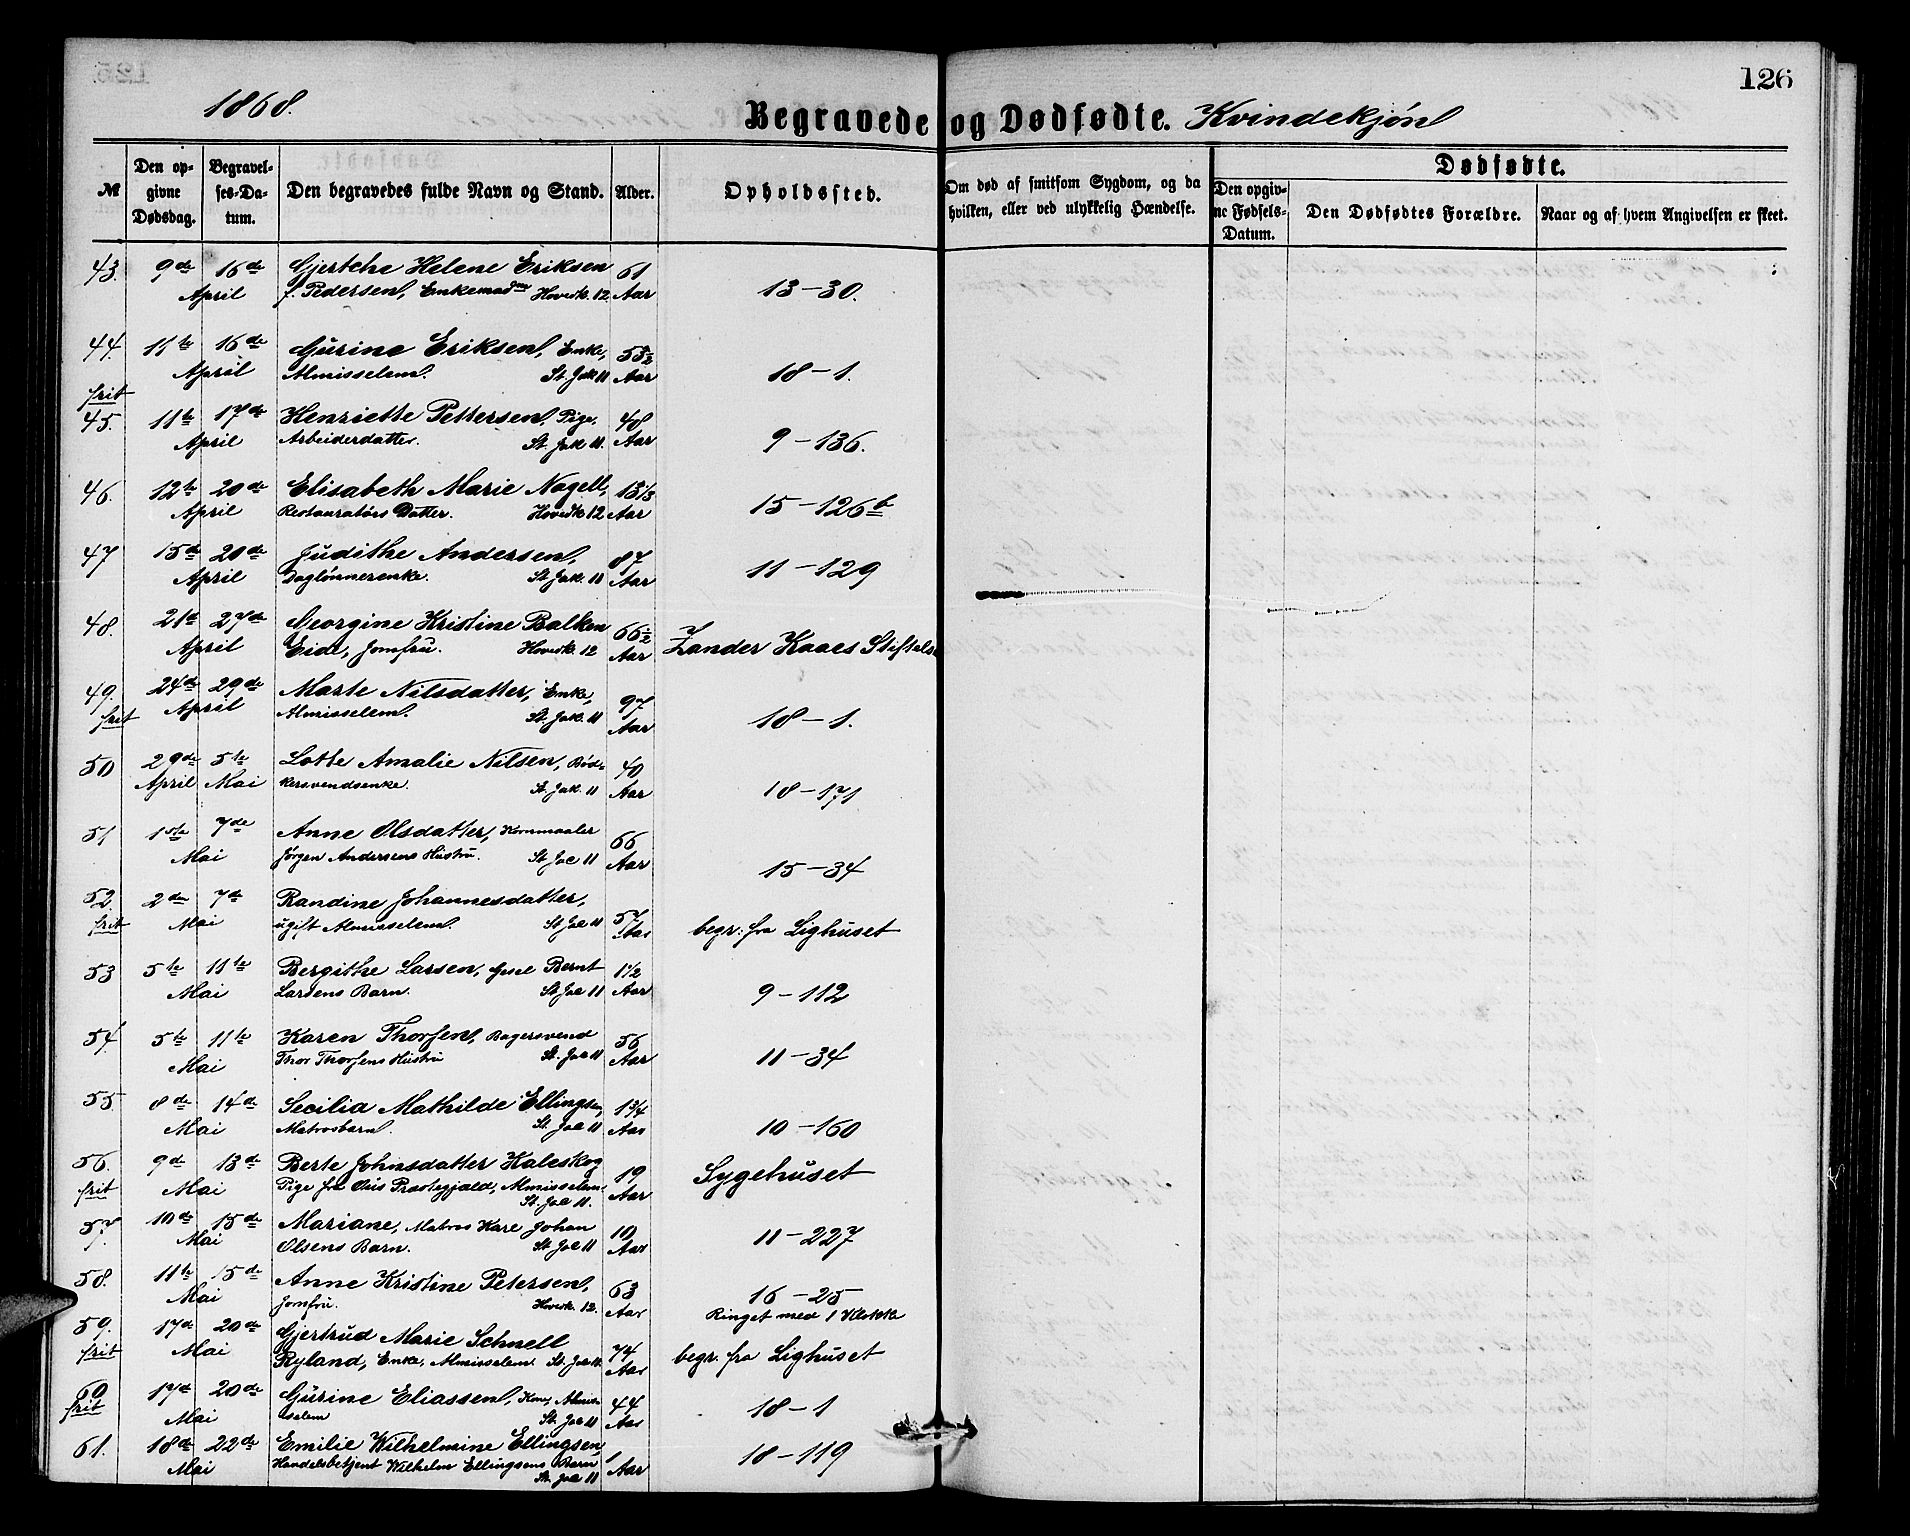 126
1868.
Begravede og Dødfødte. Kvindekjøn
№ Den opgivne Dødsdag. Begravelses-Datum. Den begravedes fulde Navn og Stand. Alder. Opholdssted. Om død af smitsom Sygdom, og da hvilken, eller ved ulykkelig Hændelse. Dødfødte.
Den opgivne Fødsels-Datum. Den Dødfødtes Forældre. Naar og af hvem Angivelsen er skeet.
43. 9de 16de Gjertche Helene Eriksen 61
April f. Pedersen, Enkemadme Hovedk. 12 Aar 13-30.
44. 11te 16de Gurine Eriksen, Enke, 55½
frit April Almisselem. St. Jak 11 Aar 18-1.
45. 11te 17de Henriette Pettersen, Pige, 48
April Arbeiderdatter. St. Jak 11. Aar 9-136.
46. 12te 20de Elisabeth Marie Nagell, 15⅓
April Restauratørs Datter. Hovedk 12 Aar 15-126b
47 15de 20de Judithe Andersen, 87
April Daglønnerenke. St. Jak. 11 Aar 11-129
48. 21de 27de Georgine Kristine Balken 66½
April Eide, Jomfru. Hovedk. 12 Aar Zander Kaaes Stiftelse
49. 24de 29de Marte Nilsdatter, Enke, 97
frit April Almisselem. St. Jak. 11 Aar 18-1.
50 29de 5te Lotte Amalie Nilsen, Bød- 40
April Mai kersvendsenke. St. Jak. 11 Aar 18-171
51 1ste 7de Anne Olsdatter, Kornmaaler 66
Mai Jørgen Andersens Hustru. St Jac 11 Aar 15-34
52. 2den 7de Randine Johannesdatter, 57
frit Mai ugift Almisselem. St Jac 11 Aar begr. fra Lighuset
53 5te 11te Bergithe Larsen, Gesel Bernt 1½
Mai Larsens Barn. St Jac 11 Aar 9-112
54. 5te 11te Karen Thorsen, Bagersvend 56
Mai Thor Thorsens Hustru St. Jac 11 Aar 11-34
55 8de 14de Secilia Mathilde Ellingsen, 1¾
Mai Matrosbarn. St. Jac 11 Aar 10-160
56. 9de 13de Berte Johnsdatter Kaleskog 19
frit Mai Pige fra Øius Præstegjæld, Almisselem. Aar Sygehuset
St. Jac 11.
57. 10de 15de Mariane, Matros Kare Johan 10
Mai Olsens Barn. St. Jac 11 Aar 11-227
58. 11te 15de Anne Kristine Petersen, 63
Mai Jomfru. Hovedk. 12. Aar 16-25
Ringet med 1 Klokke
59. 17de 20de Gjertrud Marie Schnell 74
frit Mai Ryland, Enke, Almisselem St. Jac 11. Aar begr. fra Lighuset
60 17de 20de Gurine Eliassen, Kone, Almis- 44
frit Mai selem St. Jac 11 Aar 18-1
61. 18de 22de Emilie Wilhelmine Ellingsen, 1
Mai Handelsbetjent Wilhelm Ellingsens Barn Aar 18-119
St. Jac 11